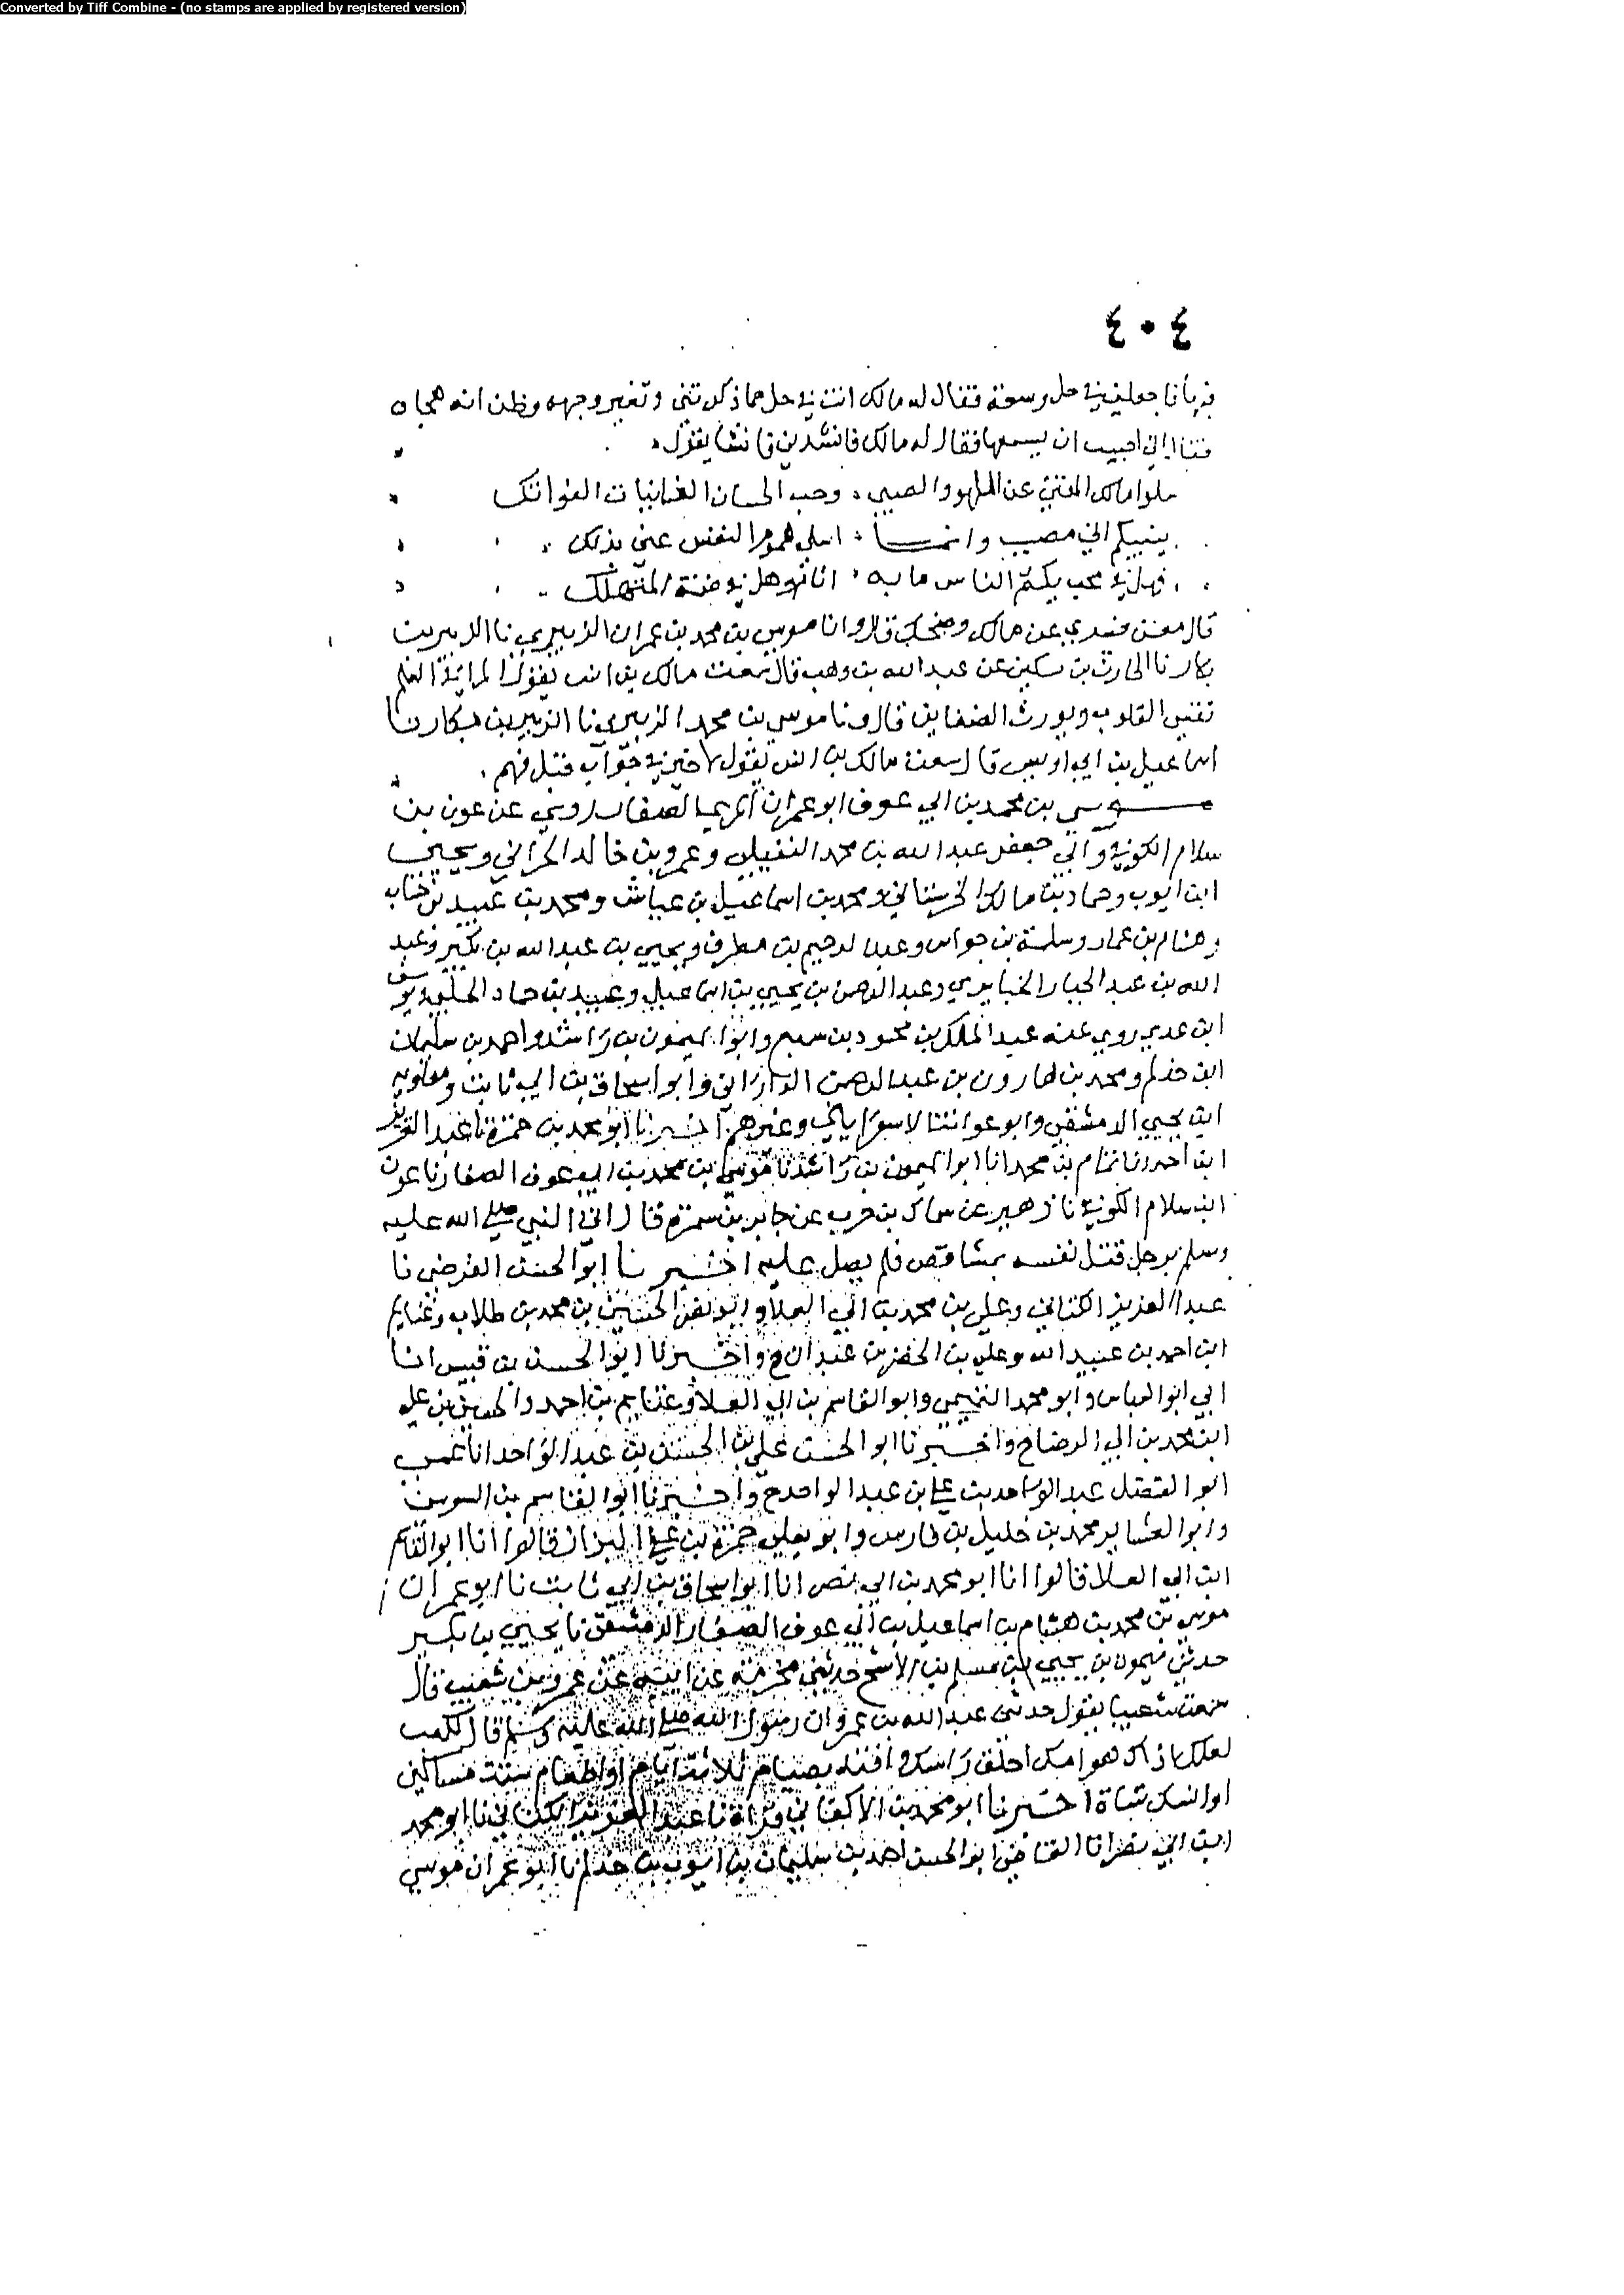 Converted by Tiff Combine - (no stamps are applied by registered version)
٤٠٤
فاجعلني في حل وسعة فقال له مالك انت في حل مما ذكرتني وتغير وجهه وظن انه هجاه
اني احببت ان يسمعها فقال له مالك فانشدني فانشا يقول
سلوا مالك المفتي عن اللهو والصبي وحب الحسان الغانيات الفواتك
ينبيكم اني مصيب وانما اسلي هموم النفس عني بذلك
فهل في محب يكتم الناس ما به اثام وهل في ضمة المتهلك
قال معن فسري عن مالك وضحك قال وانا موسى بن محمد بن عمران الزبيري نا الزبير بن
بكار نا الحارث بن سكين عن عبد الله بن وهب قال سمعت مالك بن انس يقول المرا في العلم
تقسي القلوب ويورث الضغاين قال ونا موسى بن محمد الزبيري نا الزبير بن بكار نا
اسماعيل بن ابي اويس قال سمعت مالك بن انس يقول لا خير في جواب قبل فهم
موسى بن محمد بن ابي عوف ابو عمران المري الصفار روى عن عون بن
سلام الكوفي وابي جعفر عبد الله بن محمد النفيلي وعمرو بن خالد الحراني ويحيى
ابن ايوب وحماد بن مالك الحرستاني ومحمد بن اسماعيل بن عياش ومحمد بن عبيد بن حساب
وهشام بن عمار وسلمة بن جواس وعبد الرحيم بن مطرف ويحيى بن عبد الله بن بكير وعبد
الله بن عبد الجبار الخبايري وعبد الرحمن بن يحيى بن اسماعيل وعبيد بن حماد الحلبي يوسف
ابن عدي روى عنه عبد الملك بن محمود بن سميع وابو الميمون بن راشد واحمد بن سليمان
ابن حذلم ومحمد بن هارون بن عبد الرحمن الداراني وابو اسحاق بن ابي ثابت ومعاوية
ابن يحيى الدمشقي وابو عوانة الاسفرايني وغيرهم اخبرنا ابو محمد بن حمزة نا عبد العزيز
ابن احمد انا تمام بن محمد انا ابو الميمون بن راشد نا موسى بن محمد بن ابي عوف الصفار نا عون
ابن سلام الكوفي نا زهير عن سماك بن حرب عن جابر بن سمرة قال اتي النبي صلى الله عليه
وسلم برجل قتل نفسه بمشاقص فلم يصل عليه اخبرنا ابو الحسن الفرضي نا
عبد العزيز الكتاني وعلي بن محمد بن ابي العلا وابو نصر الحسين بن محمد بن طلاب وغنايم
ابن احمد بن عبيد الله وعلي بن الخضر بن عبدان ح واخبرنا ابو الحسن بن قبيس انا
ابي ابو العباس وابو محمد التميمي وابو القاسم بن ابي العلا وغنايم بن احمد والحسين بن علي
ابن محمد بن ابي الرضا ح واخبرنا ابو الحسن علي بن الحسن بن عبد الواحد انا عمي
ابو الفضل عبد الواحد بن علي بن عبد الواحد ح واخبرنا ابو القاسم بن السوسي
وابو العشاير محمد بن خليل بن فارس وابو يعلى حمزة بن علي البزار قالوا انا ابو القاسم
ابن ابي العلا قالوا انا ابو محمد بن ابي نصر انا ابو اسحاق بن ابي ثابت نا ابو عمران
موسى بن محمد بن هشام بن اسماعيل بن ابي عوف الصفار الدمشقي نا يحيى بن بكير
حدثني ميمون بن يحيى بن مسلم بن الاشج حدثني مخرمة عن ابيه عن عمرو بن شعيب قال
سمعت شعيبا يقول حدثني عبد الله بن عمرو ان رسول الله صلى الله عليه وسلم قال لكعب
لعلك اذاك هوامك احلق راسك وافتد بصيام ثلاثة ايام او اطعام ستة مساكين
او انسك شاة اخبرنا ابو محمد بن الاكفاني قراة نا عبد العزيز الكتاني نا ابو محمد
ابن ابي نصر انا القاضي ابو الحسن احمد بن سليمان بن ايوب بن حذلم نا ابو عمران موسى